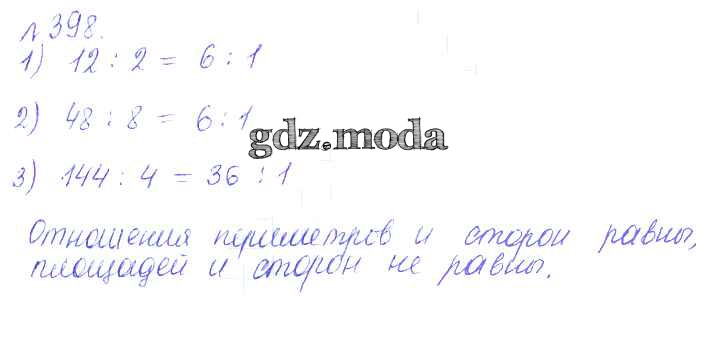 № 398.
1) 12 : 2 = 6 : 1
2) 48 : 8 = 6 : 1
gdz.moda
3) 144 : 4 = 36 : 1
Отношения периметров и сторон равны,
площадей и сторон не равны.